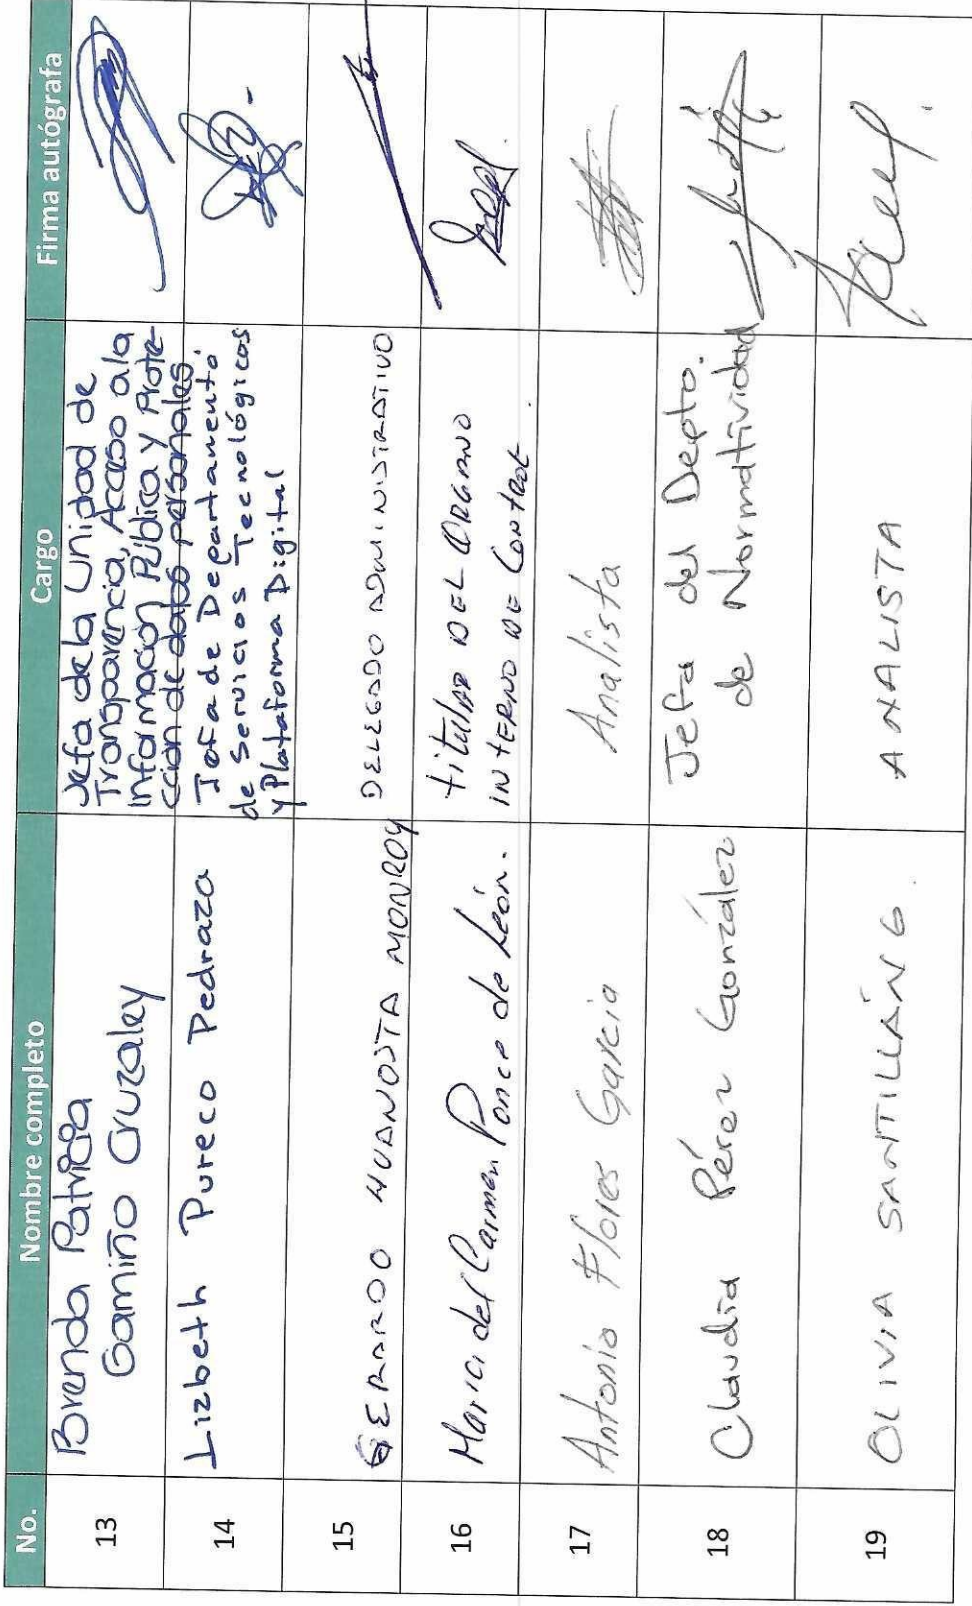 No. Nombre completo Cargo Firma autógrafa
13
Brenda Patricia
Gamiño Cruzaley
Jefa de la Unidad de
Transparencia, Acceso a la
Información Pública y Prote-
cción de datos personales
14
Lizbeth Pureco Pedraza
Jefa de Departamento
de Servicios Tecnológicos
y Plataforma Digital
15
GERARDO HUANOSTA MONROY
DELEGADO ADMINISTRATIVO
16
Maria del Carmen Ponce de León.
titular DEL ORGANO
INTERNO DE Control.
17
Antonio Flores Garcia
Analista
18
Claudia Pérez González
Jefa del Depto.
de Normatividad
19
OLIVIA SANTILLÁN G.
ANALISTA